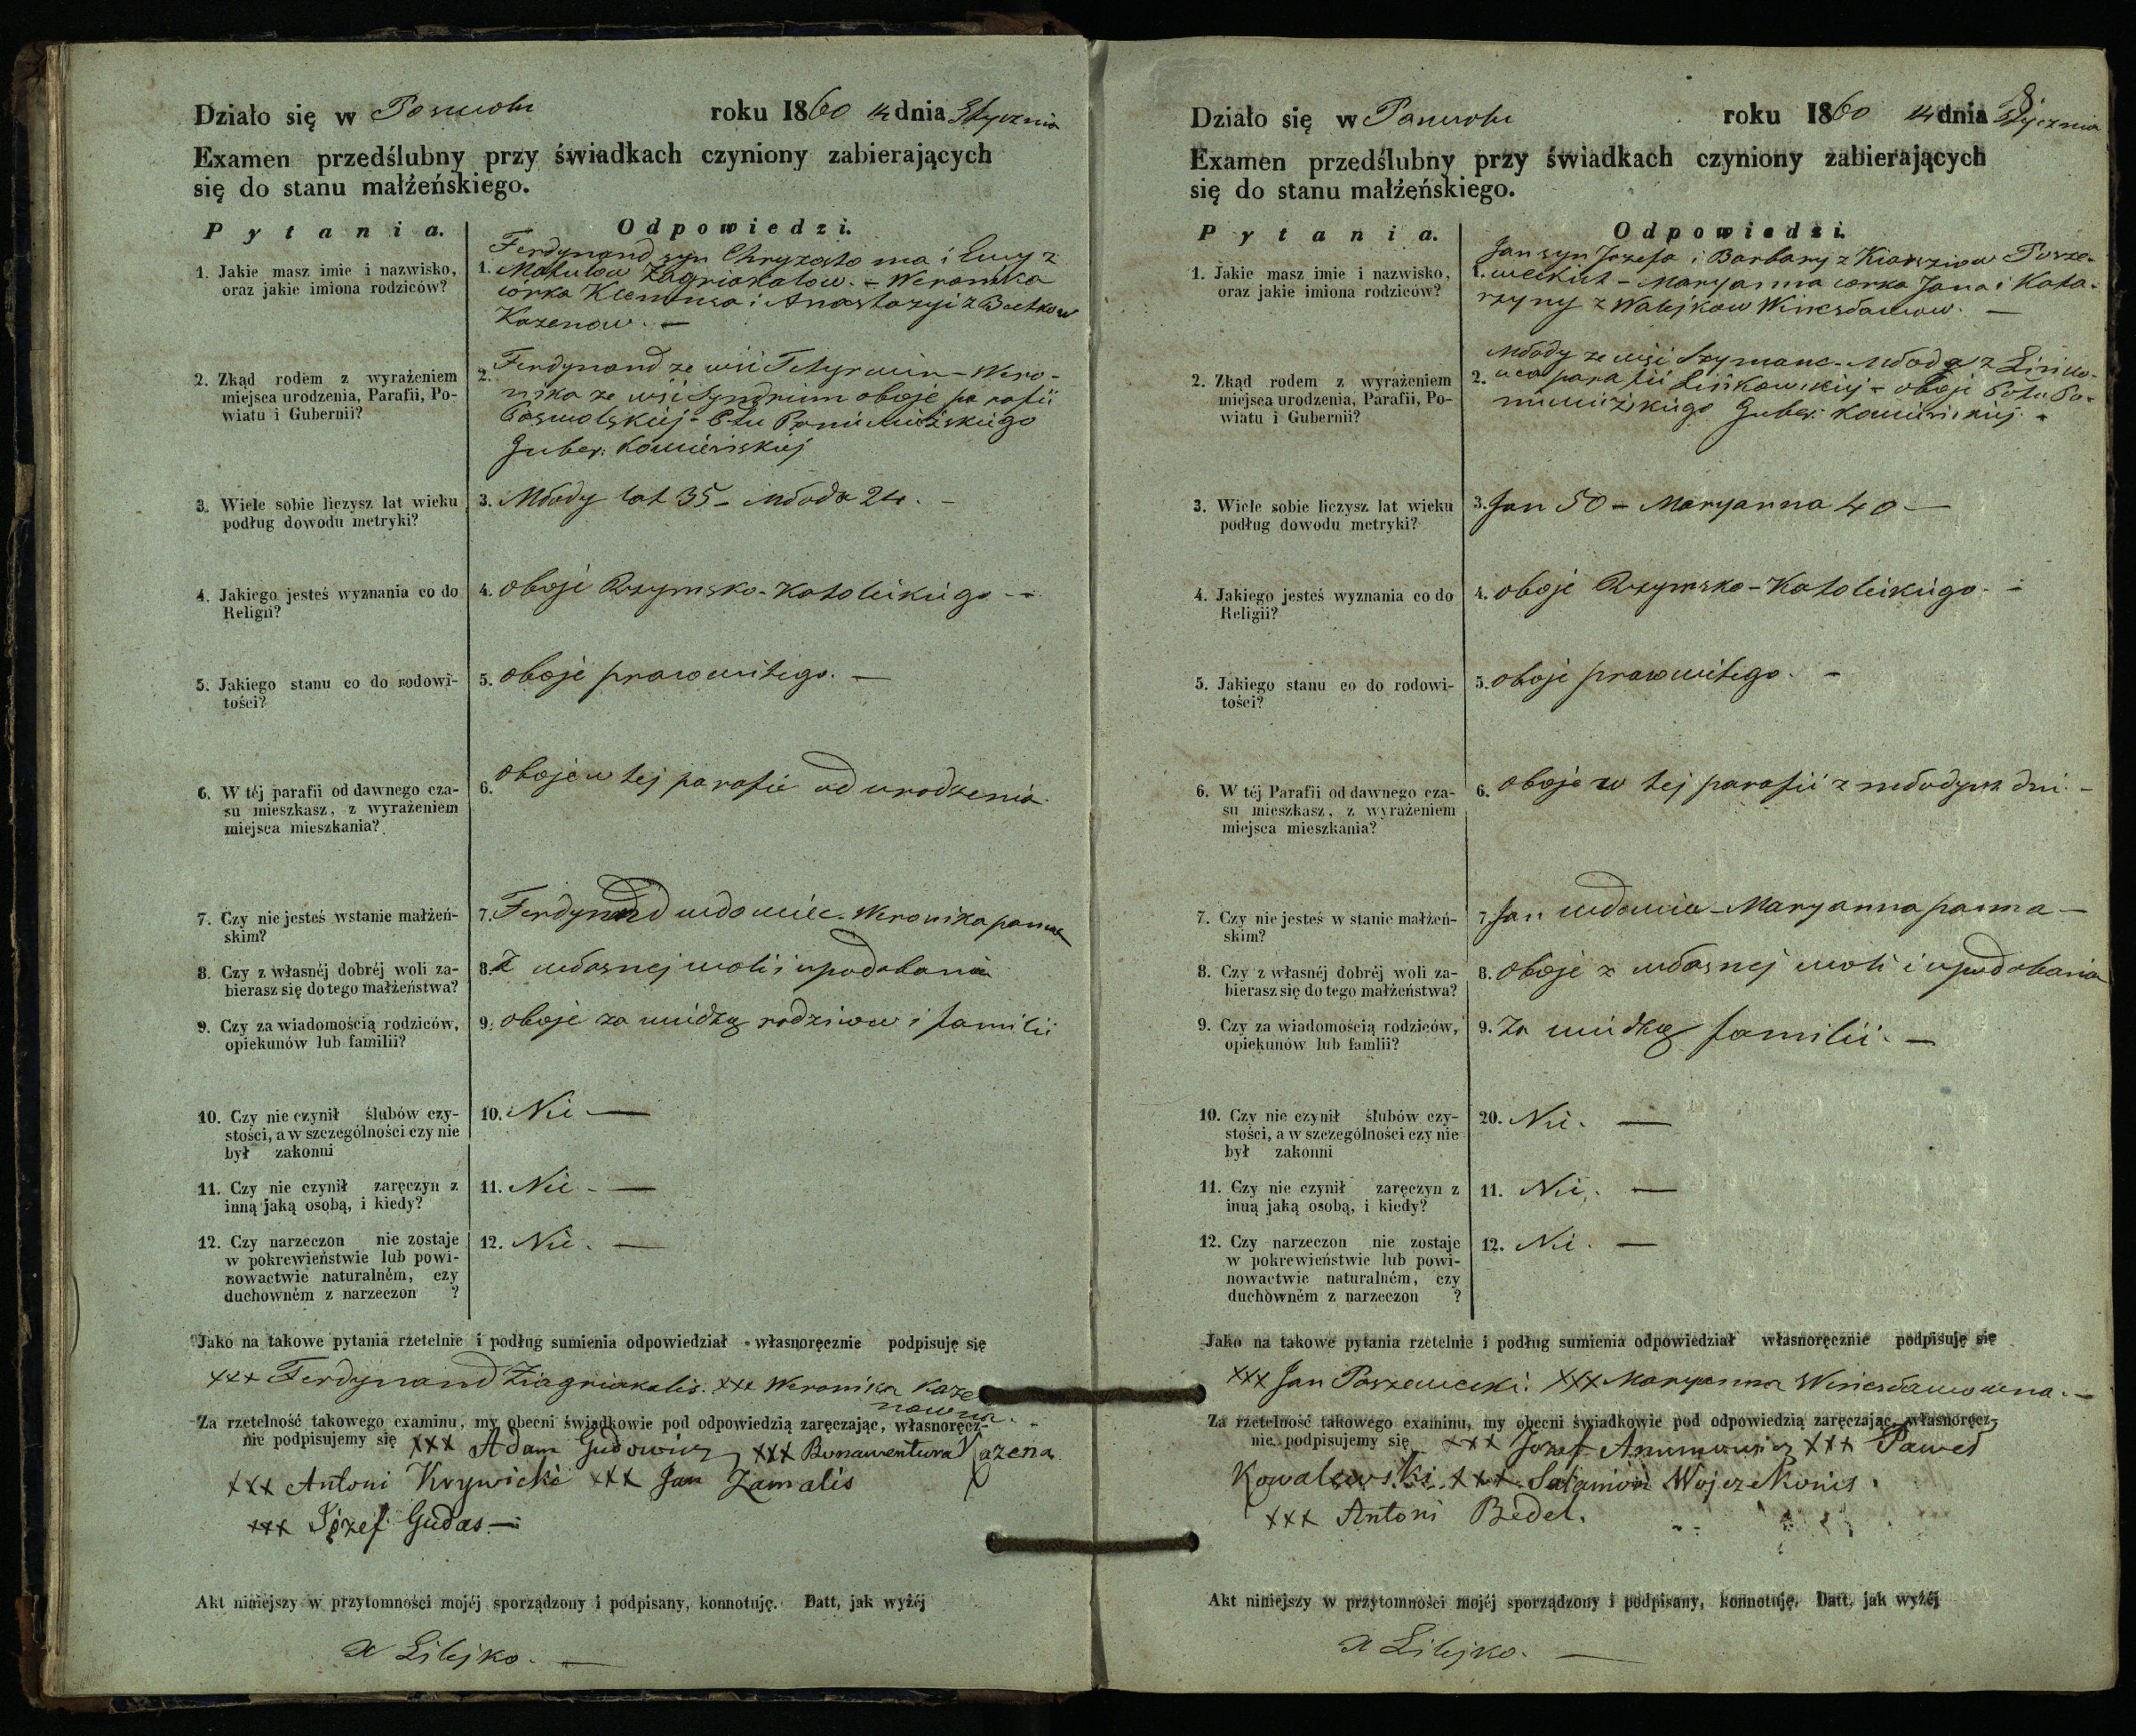 Działo się w Poswolu roku 1860 14 dnia Stycznia
Examen przedślubny przy świadkach czyniony zabierających
się do stanu małżeńskiego.
Pytania. Odpowiedzi.
1. Jakie masz imie i nazwisko,
oraz jakie imiona rodziców?
Ferdynand syn Chryzosto ma i Ewy z
1. Matulow Zagniakalow. – Weronika
córka Klemensa i Anastazyi z
Kazenow. —
2. Zkąd rodem z wyrażeniem
miejsca urodzenia, Parafii, Po-
wiatu i Gubernii?
2. Ferdynand ze wsi Tetyrwin – Wero-
nika ze wsi Syndrium oboje pa rafii
Poswolskiej – Ptu Poniewiezskiego
Guber: Kowieńskiej
3. Wiele sobie liczysz lat wieku
podług dowodu metryki?
3. Młody lat 35 – Młoda 24. –
4. Jakiego jesteś wyznania co do
Religii?
4. oboje Rzymsko-Katolickiego –
5. Jakiego stanu co do rodowi-
tości?
5. oboje prawowitego. —
6. W téj parafii od dawnego cza-
su mieszkasz, z wyrażeniem
miejsca mieszkania?
6. oboje w tej parafii od urodzenia.
7. Czy nie jesteś wstanie małżeń-
skim?
7. Ferdynand wdowiec. Weronika panna
8. Czy z własnéj dobréj woli za-
bierasz się do tego małżeństwa?
8. Z własnej woli i upodobania
9. Czy za wiadomością rodziców,
opiekunów lub familii?
9. oboje za wiedzą rodzicow i familii
10. Czy nie czynił ślubów czy-
stości, a w szczególności czy nie
był zakonni
10. Nie —
11. Czy nie czynił zaręczyn z
inną jaką osobą, i kiedy?
11. Nie – —
12. Czy narzeczon nie zostaje
w pokrewieństwie lub powi-
nowactwie naturalném, czy
duchowném z narzeczon ?
12. Nie. —
Jako na takowe pytania rzetelnie i podług sumienia odpowiedział własnoręcznie podpisuję się
xxx Ferdynand Ziagniakalis. xxx Weronika Kaze
nowna. –
Za rzetelność takowego examinu, my obecni świadkowie pod odpowiedzią zaręczając, własnoręcz-
nie podpisujemy się xxx Adam Gudowicz, xxx Bonawentura Kazena
xxx Antoni Krywicki xxx Jan Zamalis
xxx Józef Gudas —
Akt niniejszy w przytomności mojéj sporządzony i podpisany, konnotuję. Datt, jak wyżéj
X Libejko. —
8
Działo się w Poswolu roku 1860 14 dnia Stycznia
Examen przedślubny przy świadkach czyniony zabierających
się do stanu małżeńskiego.
Pytania. Odpowiedzi.
1. Jakie masz imie i nazwisko,
oraz jakie imiona rodziców?
Jan syn Jozefa i Barbary z Posze-
1. weckich – Maryanna corka Jana i Kata-
rzyny z Walejkow —
2. Zkąd rodem z wyrażeniem
miejsca urodzenia, Parafii, Po-
wiatu i Gubernii?
Młody ze wsi Szymanc – Młoda z
2. parafii Linkowskiej – oboje Potu Po-
niewiezskiego Guber: Kowieńskiej. –
3. Wiele sobie liczysz lat wieku
podług dowodu metryki?
3. Jan 50 – Maryanna 40 —
4. Jakiego jesteś wyznania co do
Religii?
4. oboje Rzymsko-Katolickiego. –
5. Jakiego stanu co do rodowi-
tości?
5. oboje prawowitego. –
6. W téj Parafii od dawnego cza-
su mieszkasz, z wyrażeniem
miejsca mieszkania?
6. oboje w tej parafii z młodych dni. –
7. Czy nie jesteś w stanie małżeń-
skim?
7. Jan wdowiec – Maryanna panna —
8. Czy z własnéj dobréj woli za-
bierasz się do tego małżeństwa?
8. oboje z własnej woli i upodobania
9. Czy za wiadomością rodziców,
opiekunów lub famlii?
9. Za wiedzą familii. —
10. Czy nie czynił ślubów czy-
stości, a w szczególności czy nie
był zakonni
20. Nie. —
11. Czy nie czynił zaręczyn z
inną jaką osobą, i kiedy?
11. Nie. —
12. Czy narzeczon nie zostaje
w pokrewieństwie lub powi-
nowactwie naturalném, czy
duchowném z narzeczon ?
12. Nie. —
Jako na takowe pytania rzetelnie i podług sumienia odpowiedział własnoręcznie podpisuję się
xxx Jan Poszewecki. xxx Maryanna —
Za rzetelność takowego examinu, my obecni świadkowie pod odpowiedzią zaręczając, własnoręcz-
nie podpisujemy się xxx Jozef xxx Paweł
Kowalewski xxx Salamon Wojczekonis.
xxx Antoni Bedel.
Akt niniejszy w przytomności mojéj sporządzony i podpisany, konnotuję. Datt, jak wyżéj
X Libejko. —